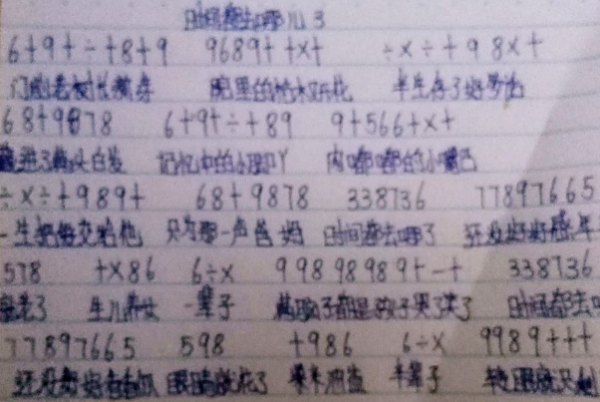 时间都去哪儿了
6+9+÷+8+9 9689++x+ ÷x÷+98x+
门前老树长新芽 院里的枯木又开花 半生存了好多话
68+9878 6+9+÷+89 9+566+x+
藏进了满头白发 记忆中的小脚丫 肉嘟嘟的小嘴巴
÷x÷+989+ 68+9878 338736 77897665
一生把爱交给他 只为那一声爸妈 时间都去哪了 还没好好感年
578 +x86 6÷x 99898989+-+ 338736
就老了 生儿养女 一辈子 满脑子都是孩子哭了笑了 时间都去
77897665 598 +986 6÷x 9989+++
还没好好看看 眼睛就花了 柴米油盐 半辈子 转眼就只